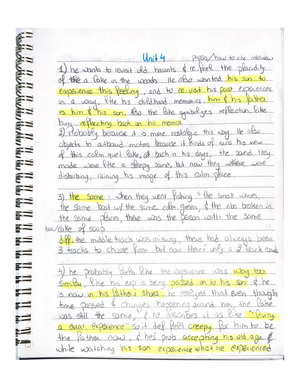 Unit 4
1) he wants to revisit old haunts & re feel the placidity
of a lake in the woods. He also wanted his son to
experience this feeling, and to re visit his past experiences
in a way, like his childhood memories. him & his father
is him & his son. Also the lake symbolizes reflection, like
him reflecting back on his memories
2) Probably because it is more nostalgic this way. He also
objects to outboard motors because it kinds of ruins his view
of this calm quiet lake, back in his days, the sand they
made were like a sleepy sand, but now they were
disturbing, ruining his image of this calm place
3) the same: when they went fishing & the small waves,
the same boat w/ the same color green, & the ribs broken in
the same places, there was the person with the same
bar/cake of soap
diff: the middle track was missing, there had always been
3 tracks to choose from but now there's only a 2 track road
4) he probably felt like the experience was way too
similar, like his exp is being passed on to his son & he
is now in his father's shoes. he realized that even though
time passed & changes happening around him, the lake
was still the same, & he describes it as like "living
a dual experience" so it def felt creepy for him to be
the father now, & he's prob accepting his old age &
while watching his son experience what he experienced